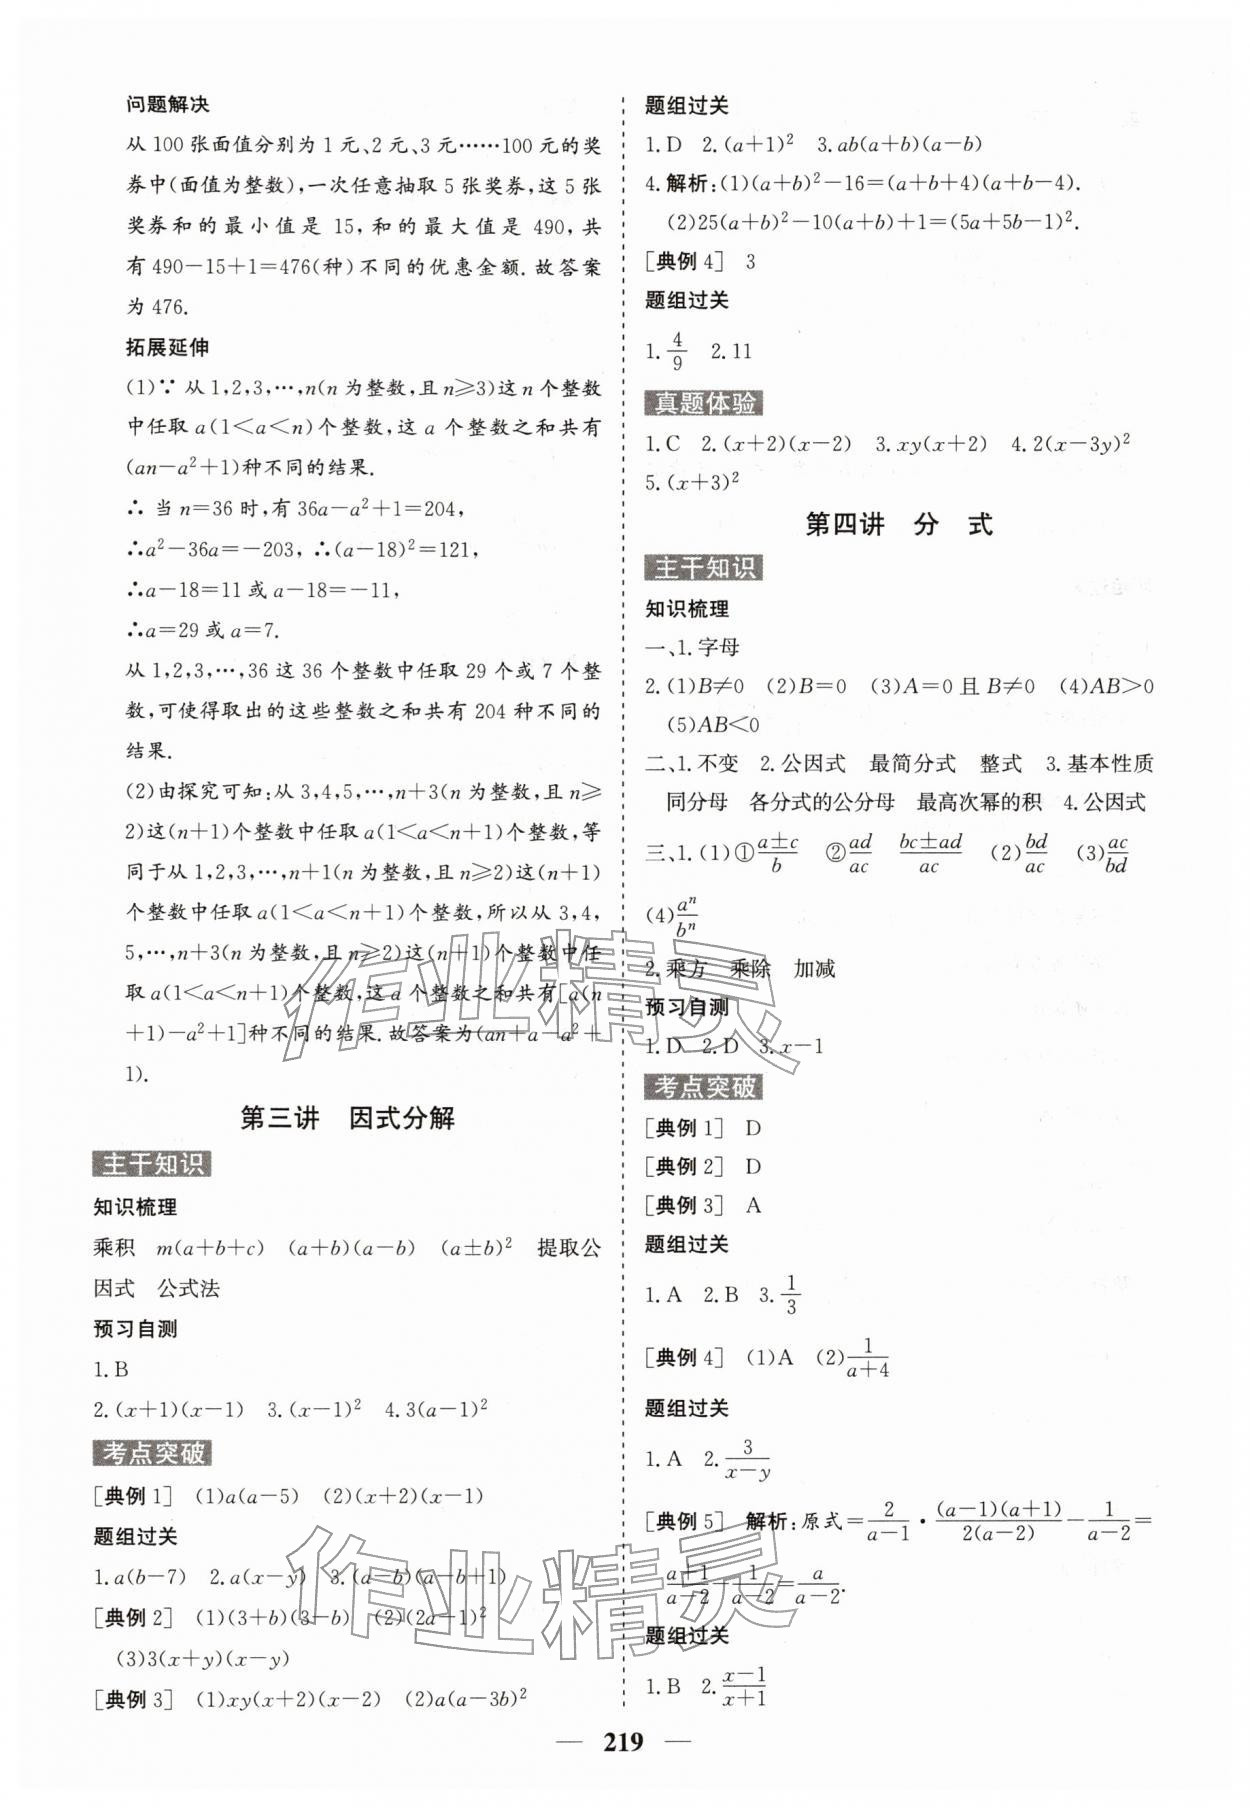 问题解决
从100张面值分别为1元、2元、3元……100元的奖
券中(面值为整数),一次任意抽取5张奖券,这5张
奖券和的最小值是15,和的最大值是490,共
有490-15+1=476(种)不同的优惠金额.故答案
为476.
拓展延伸
(1)∵从1,2,3,…,n(n为整数,且n≥3)这n个整数
中任取a(1<a<n)个整数,这a个整数之和共有
(an-a²+1)种不同的结果.
∴当n=36时,有36a-a²+1=204,
∴a²-36a=-203,∴(a-18)²=121,
∴a-18=11或a-18=-11,
∴a=29或a=7.
从1,2,3,…,36这36个整数中任取29个或7个整
数,可使得取出的这些整数之和共有204种不同的
结果.
(2)由探究可知:从3,4,5,…,n+3(n为整数,且n≥
2)这(n+1)个整数中任取a(1<a<n+1)个整数,等
同于从1,2,3,…,n+1(n为整数,且n≥2)这(n+1)
个整数中任取a(1<a<n+1)个整数,所以从3,4,
5,…,n+3(n为整数,且n≥2)这(n+1)个整数中任
取a(1<a<n+1)个整数,这a个整数之和共有[a(n
+1)-a²+1]种不同的结果.故答案为(an+a-a²+
1).
第三讲 因式分解
主干知识
知识梳理
乘积 m(a+b+c) (a+b)(a-b) (a±b)² 提取公
因式 公式法
预习自测
1.B
2.(x+1)(x-1) 3.(x-1)² 4.3(a-1)²
考点突破
[典例1] (1)a(a-5) (2)(x+2)(x-1)
题组过关
1.a(b-7) 2.a(x-y) 3.(a-b)(a-b+1)
[典例2] (1)(3+b)(3-b) (2)(2a-1)²
(3)3(x+y)(x-y)
[典例3] (1)xy(x+2)(x-2) (2)a(a-3b)²
题组过关
1.D 2.(a+1)² 3.ab(a+b)(a-b)
4.解析:(1)(a+b)²-16=(a+b+4)(a+b-4).
(2)25(a+b)²-10(a+b)+1=(5a+5b-1)².
[典例4] 3
题组过关
1.4/9 2.11
真题体验
1.C 2.(x+2)(x-2) 3.xy(x+2) 4.2(x-3y)²
5.(x+3)²
第四讲 分 式
主干知识
知识梳理
一、1.字母
2.(1)B≠0 (2)B=0 (3)A=0且B≠0 (4)AB>0
(5)AB<0
二、1.不变 2.公因式 最简分式 整式 3.基本性质
同分母 各分式的公分母 最高次幂的积 4.公因式
三、1.(1)①(a±c)/b ②ad/ac (bc±ad)/ac (2)bd/ac (3)ac/bd
(4)aⁿ/bⁿ
2.乘方 乘除 加减
预习自测
1.D 2.D 3.x-1
考点突破
[典例1] D
[典例2] D
[典例3] A
题组过关
1.A 2.B 3.1/3
[典例4] (1)A (2)1/(a+4)
题组过关
1.A 2.3/(x-y)
[典例5] 解析:原式=2/(a-1)·(a-1)(a+1)/2(a-2)-1/(a-2)=
(a+1)/(a-2)-1/(a-2)=a/(a-2).
题组过关
1.B 2.(x-1)/(x+1)
— 219 —
作业精灵
作业精灵